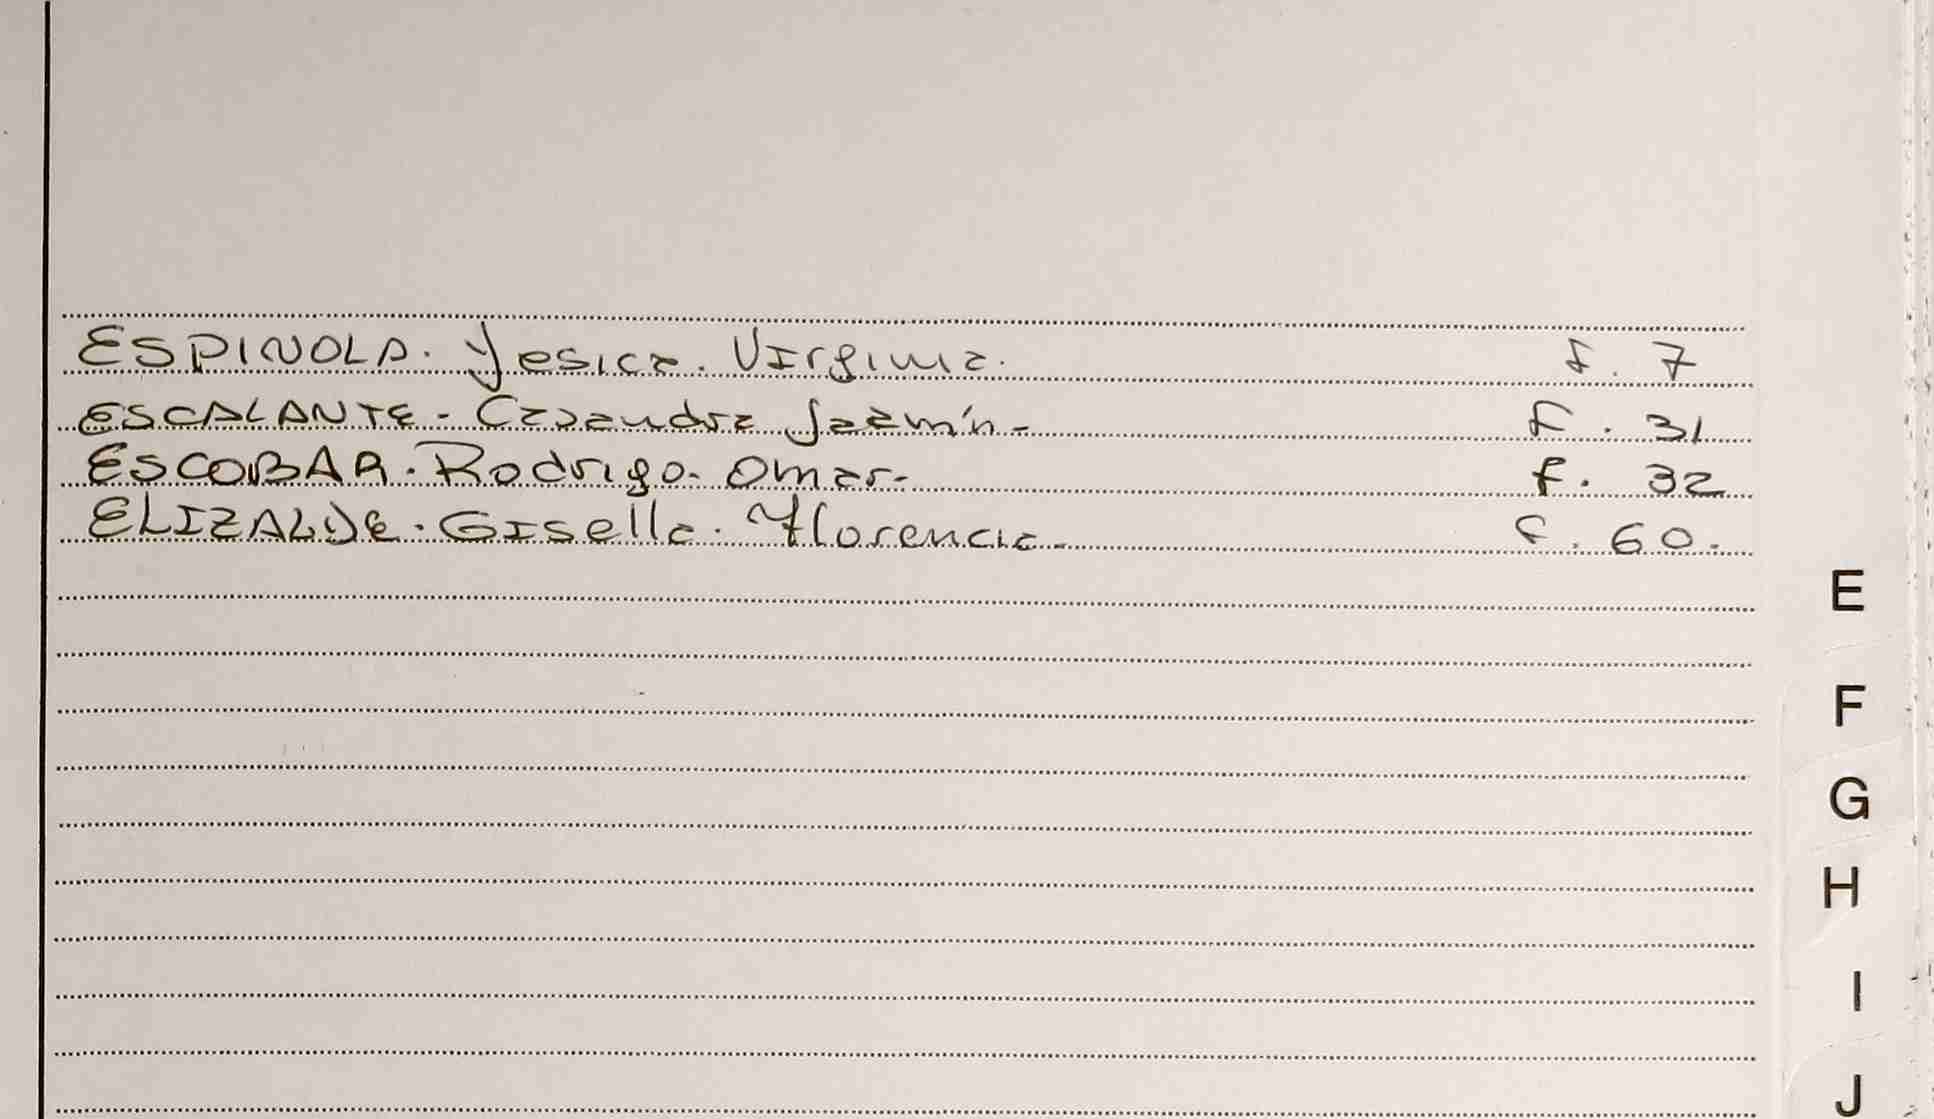 ESPINOLA. Yesica. Virginia. f. 7
ESCALANTE - Casandra Jazmín - f. 31
ESCOBAR. Rodrigo. Omar - f. 32
ELIZALDE. Gisella. Florencia - f. 60.
E
F
G
H
I
J